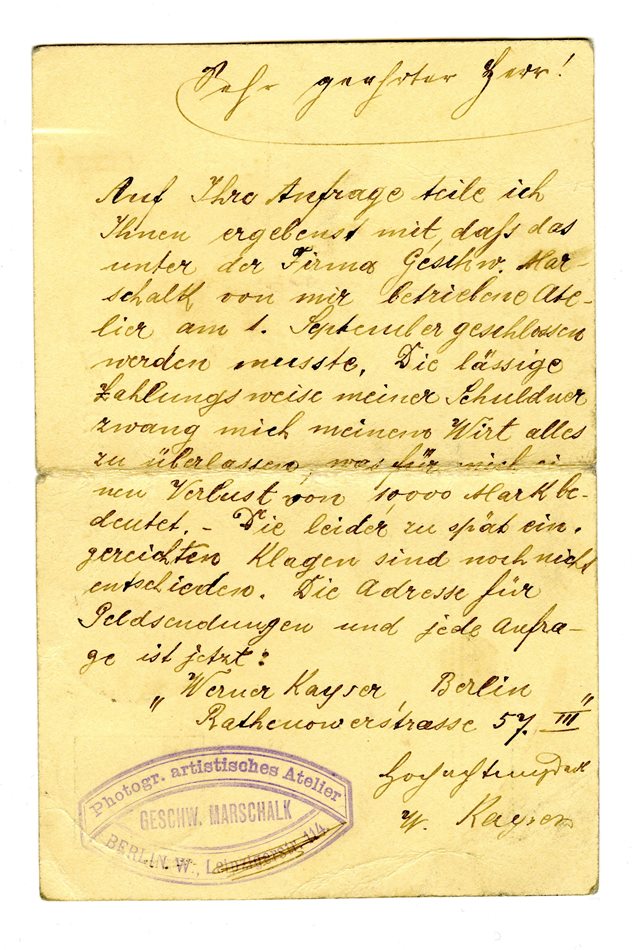 Sehr geehrter Herr!
Auf Ihre Anfrage teile ich
Ihnen ergebenst mit, daſs das
unter der Firma Geschw. Mar-
schalk von mir betriebene Ate-
lier am 1. September geschlossen
werden musste. Die lässige
Zahlungsweise meiner Schuldner
zwang mich meinem Wirt alles
zu überlassen, was für mich ei-
nen Verlust von 10000 Mark be-
deutet. - Die leider zu spät ein-
gereichten Klagen sind noch nicht
entschieden. Die Adresse für
Geldsendungen und jede Anfra-
ge ist jetzt:
„Werner Kayser, Berlin
Rathenowerstrasse 57. III"
Hochachtungsvoll
W. Kayser
Photogr. artistisches Atelier
GESCHW. MARSCHALK
BERLIN. W., Leipzigerstr. 114.